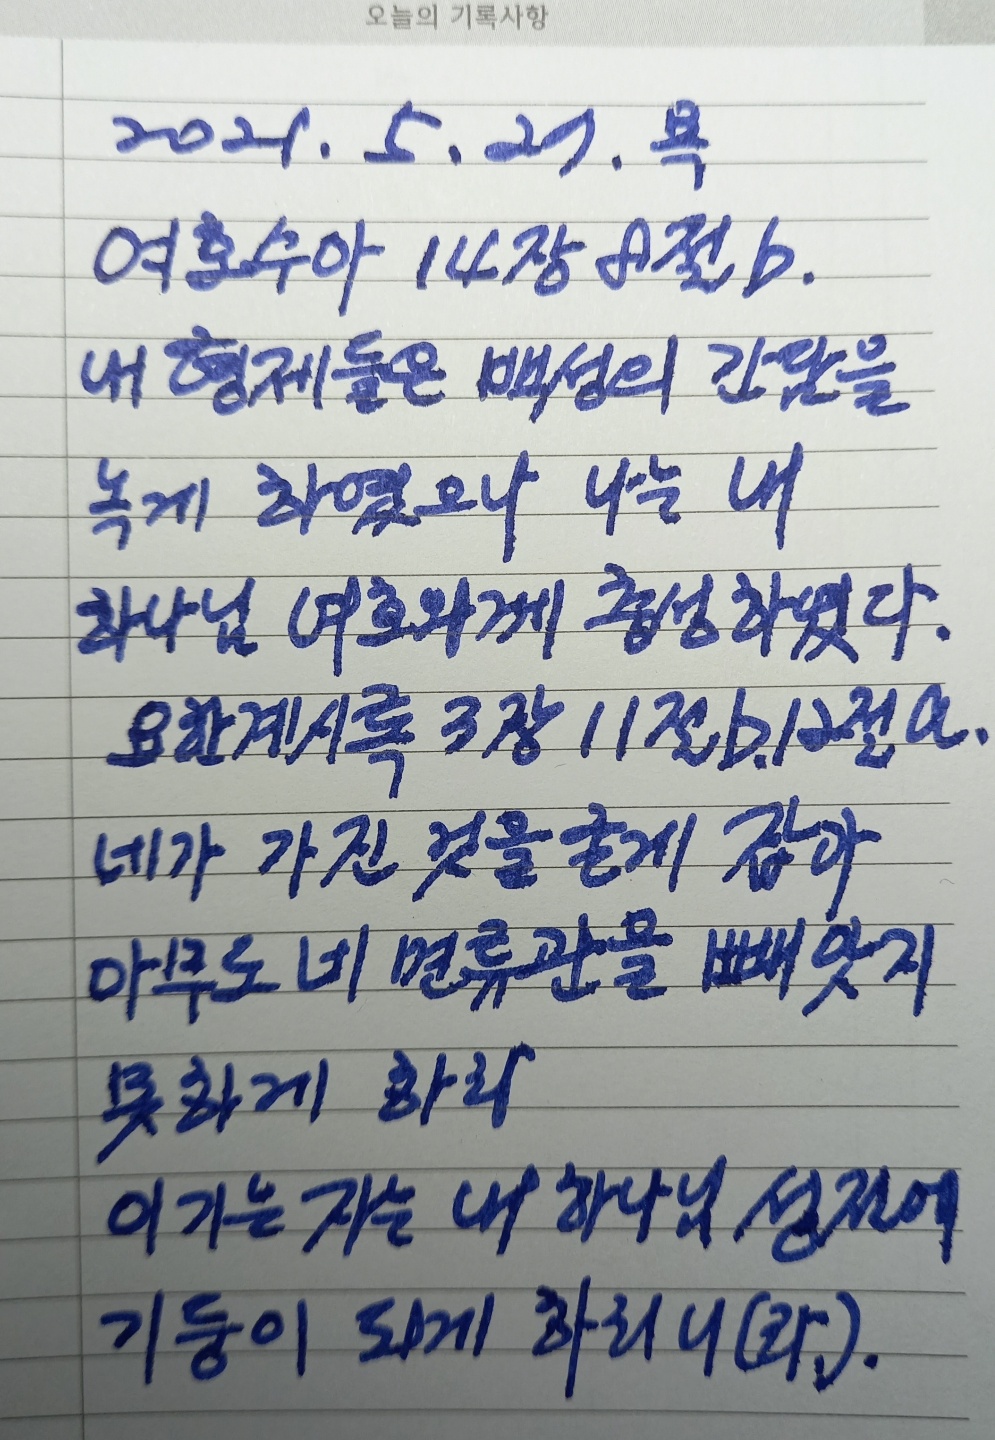 오늘의 기록사항
2021. 5. 27. 목
여호수아 14장 8절 b.
내 형제들은 백성의 간담을
녹게 하였으나 나는 내
하나님 여호와께 충성하였다.
요한계시록 3장 11절b.12절a.
네가 가진 것을 굳게 잡아
아무도 네 면류관을 빼앗지
못하게 하라
이기는 자는 내 하나님 성전에
기둥이 되게 하리니(라.).